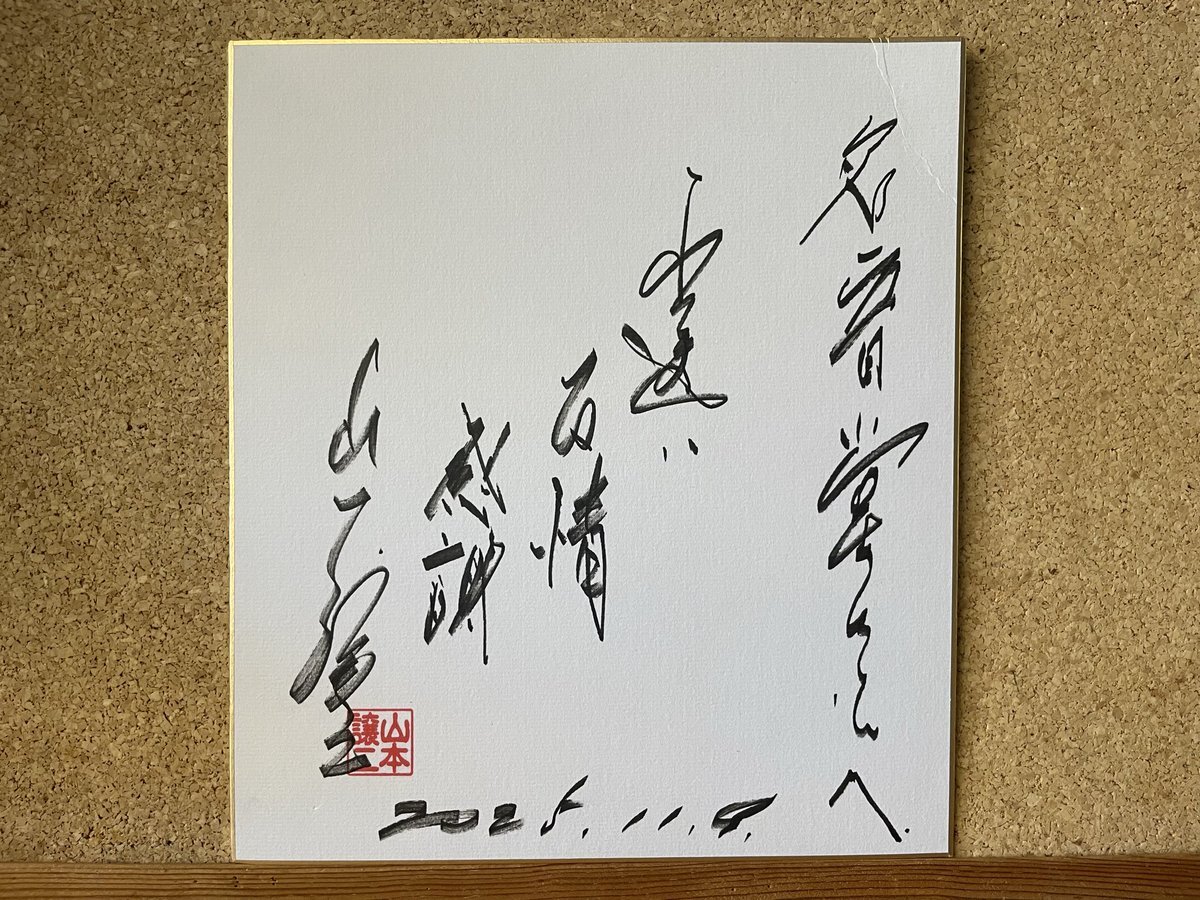 名音堂さんへ
逢い
百情
感謝
山本譲二
山本
譲二
2025.11.8.